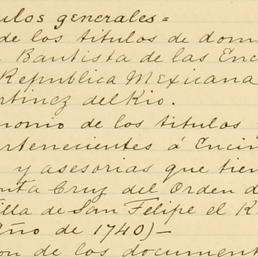 ulos generales=
de los titulos de dom
Bautista de las Enc
Republica Mexicana
rtinez del Rio.
monio de los titulos
artenecientes á Encin
y asesorias que tien
nta Cruz del Orden d
illa de San Felipe el R
Año de 1740)-
on de los document